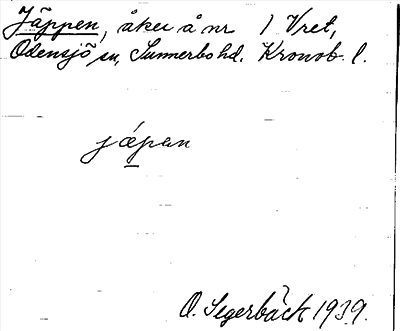 Jäppen, åker å nr 1 Vret,
Odensjö sn, Sunnerbo hd. Kronob. l.
jápan
O. Segerbäck 1939.